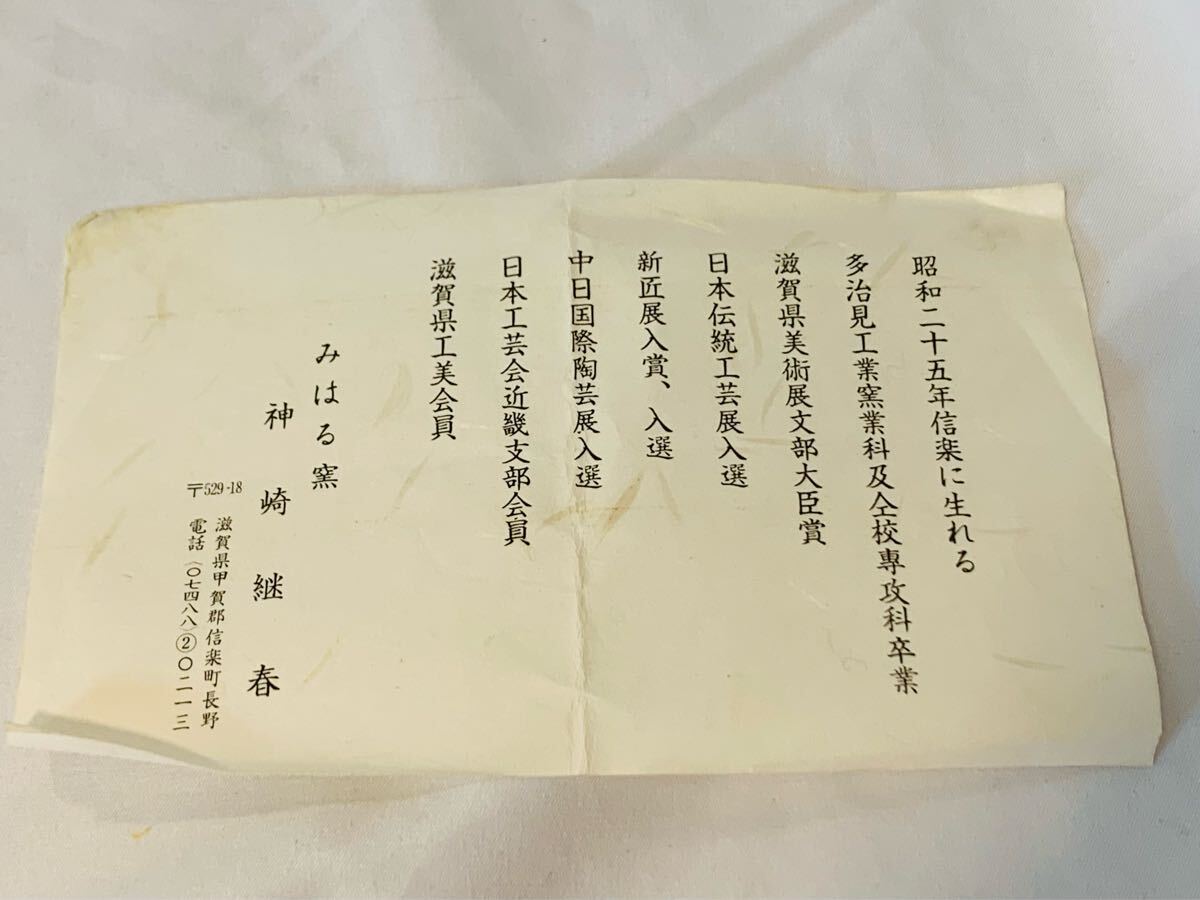 昭和二十五年信楽に生れる
多治見工業窯業科及仝校専攻科卒業
滋賀県美術展文部大臣賞
日本伝統工芸展入選
新匠展入賞、入選
中日国際陶芸展入選
日本工芸会近畿支部会員
滋賀県工美会員
みはる窯
神崎継春
〒529-18 滋賀県甲賀郡信楽町長野
電話(〇七四八八)②〇二一三